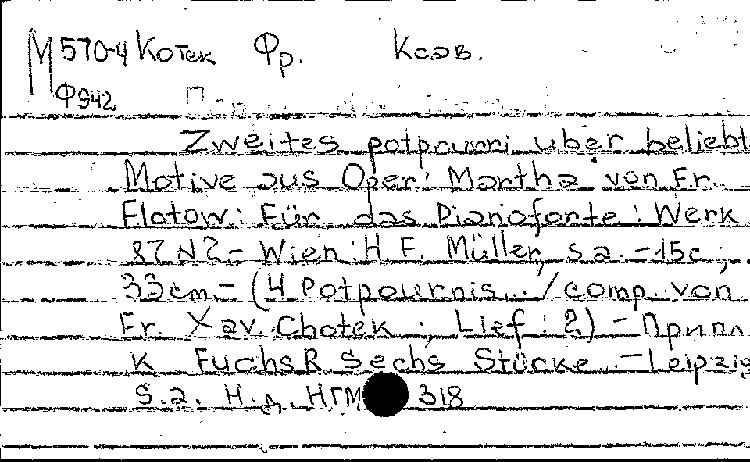 М 570-4 Котек Фр. Ксав.
Ф942
Zweites potpourri uber beliebt
Motive aus Oper: Martha von Fr.
Flotow: Für das Pianoforte: Werk
87 N2 – Wien: H. F. Müller, s.a. – 15c;
33cm. – (4 Potpourris... / comp. von
Fr. Xav. Chotek; Lief. 2) – Припл.
к Fuchs R Sechs Stücke. – Leipzig
S.a. Н.д. НГМ 318